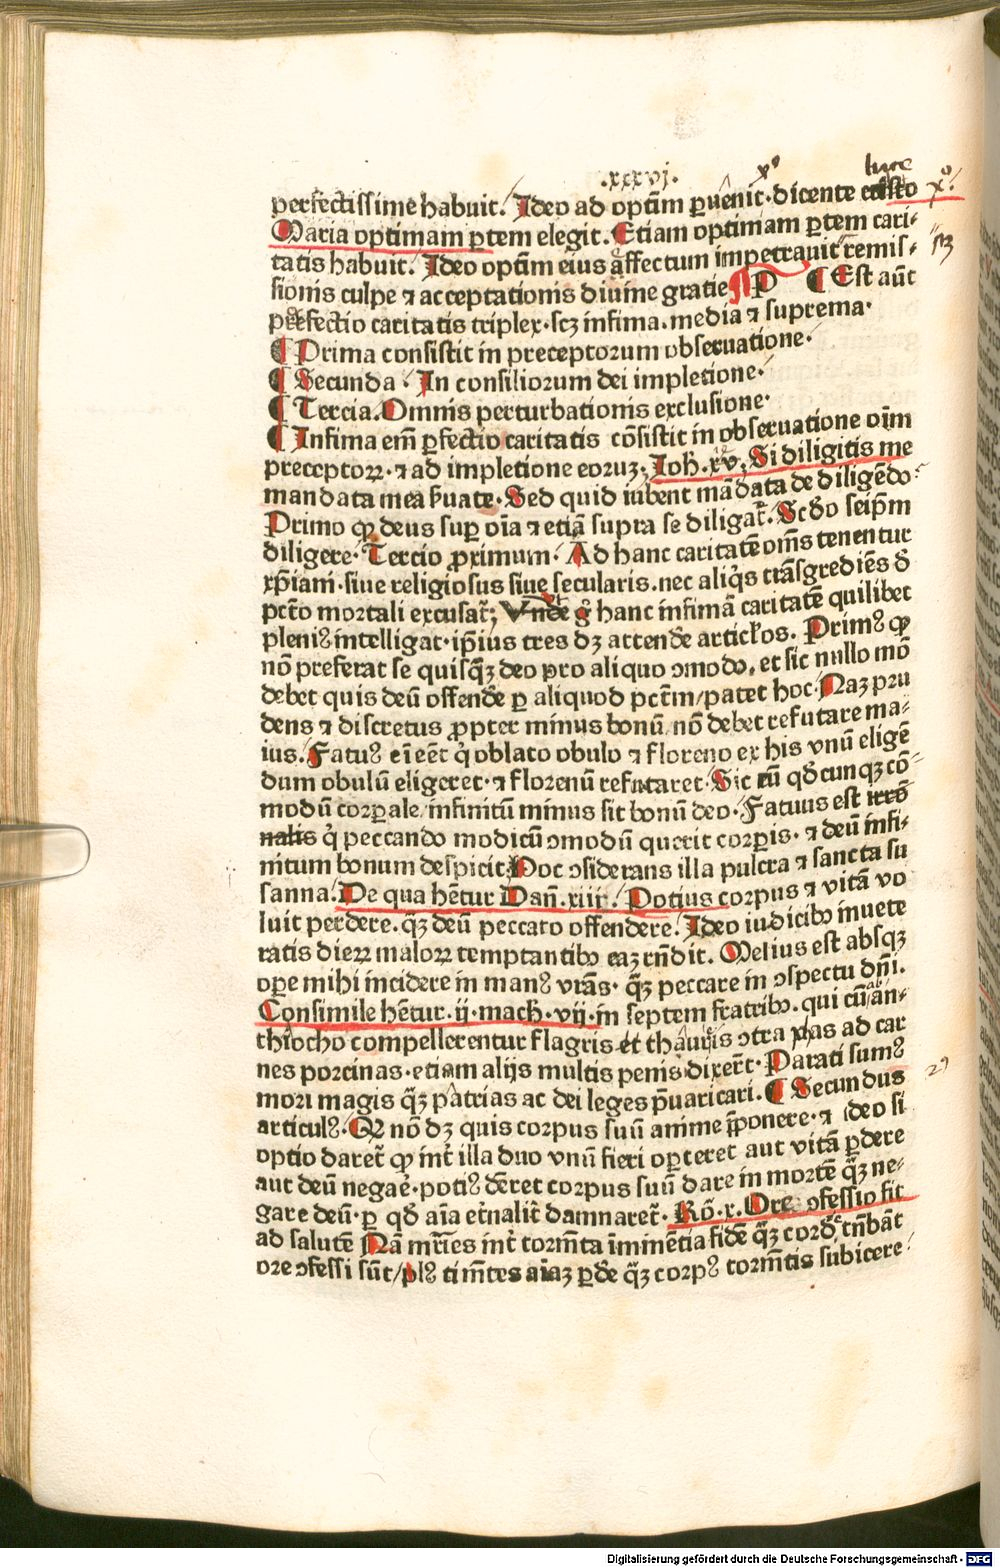 .xxxvj.
xᵒ
luce
xᵒ.
perfectissime habuit. Ideo ad optī̄m ꝑuenit. dicente cristo
Maria optimam ꝑtem elegit. Etiam optimam ꝑtem cari-
tatis habuit. Ideo optīm eius affectum impetrauit remis-
sionis culpe ⁊ acceptationis diuine gratie P ¶ Est aūt
perfectio caritatis triplex. scꝫ infima. media ⁊ suprema.
¶ Prima consistit in preceptorum obseruatione.
¶ Secunda. In consiliorum dei impletione.
¶ Tercia. Omnis perturbationis exclusione.
¶ Infima em̄ ꝑfectio caritatis cōsistit in obseruatione oīm
preceptoꝝ. ⁊ ad impletione eoruꝫ. Joh̄. xv̄. Si diligitis me
mandata mea ẜuate. Sed quid iubent mādata de diligēdo
Primo ꝙ deus suꝑ oīa ⁊ etiā supra se diligat̄. Scd̄o seip̄m
diligere. Tercio ꝓximum. Ad hanc caritatē om̄s tenentur
xp̄iani. siue religiosus siue secularis. nec aliq̄s trāsgrediēs d̄
pctō mortali excusat̄; Vnde g̊ hanc infimā caritatē quilibet
pleniꝰ intelligat. ip̄ius tres dꝫ attendē̄ articl̄os. Primꝰ ꝙ
nō preferat se quisq̄ꝫ deo pro aliquo ꝯmodo. et sic nullo mō
debet quis deū offendē̄ ꝑ aliquod pctm̄/ patet hoc. Naꝫ pru
dens ⁊ discretus ꝓpter minus bonū nō debet refutare ma-
ius. Fatuꝰ eī eēt q̇ oblato obulo ⁊ floreno ex his vnū eligē
dum obulū eligeret. ⁊ florenū refutaret. Sic cū qd̄cunqꝫ cō-
modū corꝑale infinitū minus sit bonū deo. Fatuus est irrō
nalis q̇ peccando modicū ꝯmodū querit corꝑis. ⁊ deū infi-
nitum bonum despicit. Hoc ꝯsiderans illa pulcra ⁊ sancta su
sanna. De qua hētur Dan̄. xiii. Potius corpus ⁊ vitā vo
luit perdere. q̄ꝫ deū peccato offendere. Ideo iudicibꝫ inuete
ratis dieꝝ maloꝝ temptantibꝫ eaꝫ rn̄dit. Melius est absqꝫ
oꝑe mihi incidere in manꝰ vr̄as. q̄ꝫ peccare in ꝯspectu dn̄i.
Consimile hētur. ij. mach̄. vij. in septem fratribꝫ. qui cū an-
thiocho compellerentur flagris et thauris ꝯtra phas ad car
nes porcinas. etiam alijs multis penis dixert̄. Parati sumꝰ
mori magis q̄ꝫ patrias ac dei leges p̄uaricari. ¶ Secundus
articulꝰ. Qꝛ nō dꝫ quis corpus suū anime p̄ponere. ⁊ ideo si
optio daret̄ ꝙ int̄ illa duo vnū fieri oꝑteret aut vitā ꝑdere
aut deū negaē. potiꝰ dēret corpus suū dare in mortē q̄ꝫ ne-
gare deū. ꝑ qd̄ aīa et̄nalit̄ damnaret̄. Rō. x. Ore ꝯfessio fit
ad salutē Nā mr̄ies int̄ torm̄ta imīnētia fidē q̄ꝫ cord̄ tn̄bāt
ore ꝯfessi sūt/ plꝰ tim̄tes aīaꝫ ꝑdē̄ q̄ꝫ corpꝰ torm̄tis subicere
29
Digitalisierung gefördert durch die Deutsche Forschungsgemeinschaft - DFG